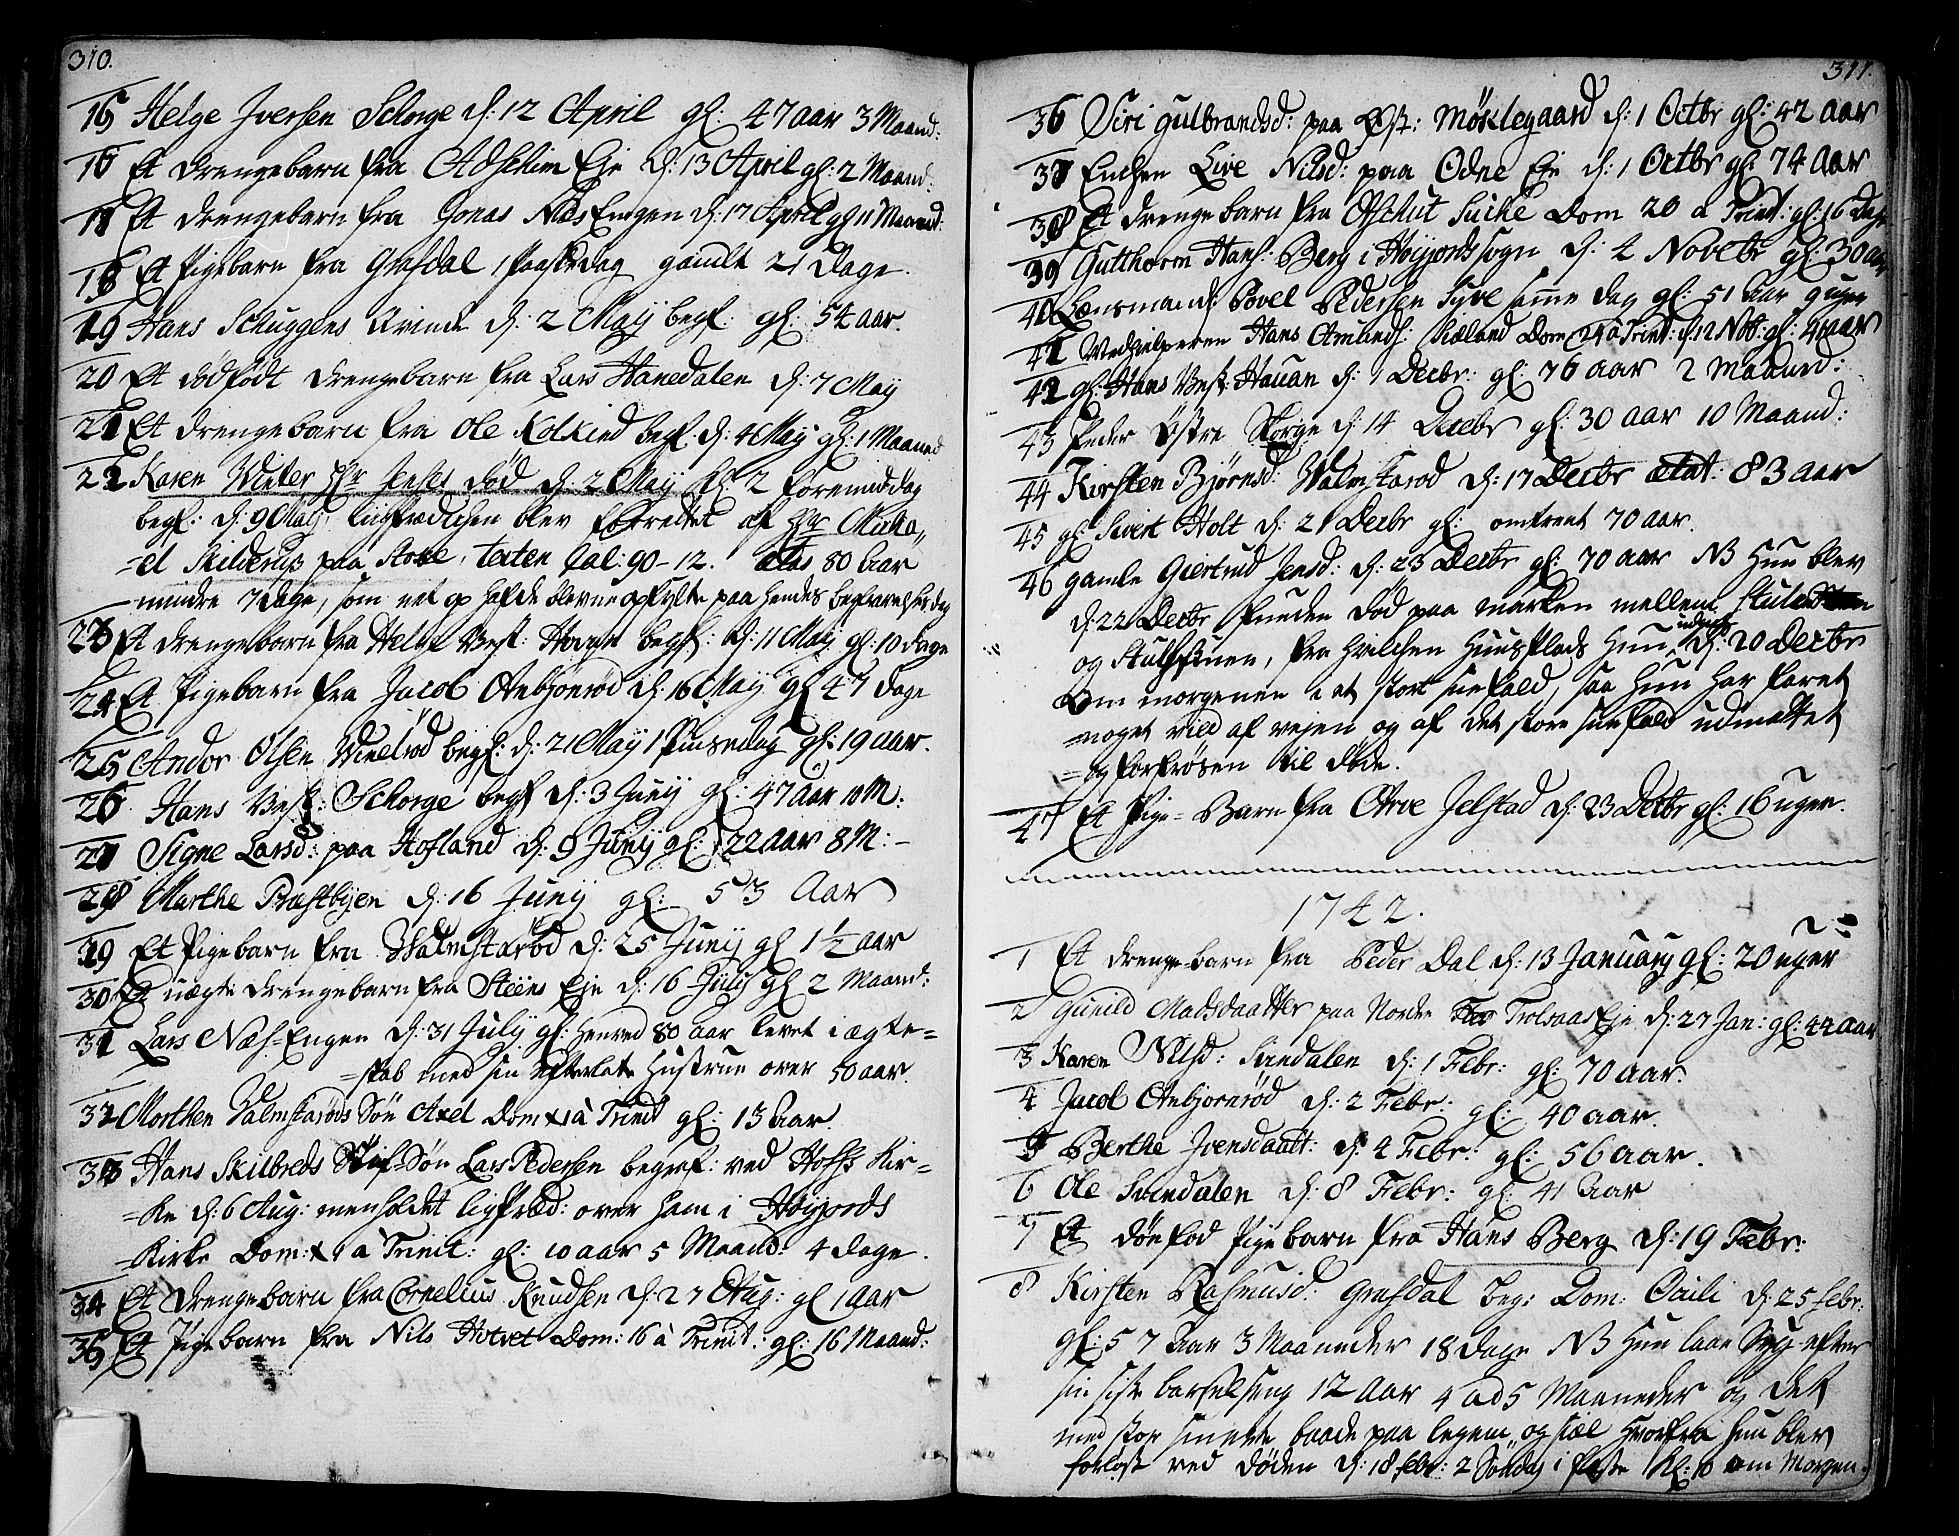 310.
15 Helge Iversen Schorge d: 12 April gl: 47 aar 3 Maand:
16 Et drengebarn fra Eje d: 13 April gl: 2 Maand:
17 Et drengebarn fra Jonas NæsEngen d: 17 April gl 11 Maaned:
18 Et Pigebarn fra Grefsdal 1 Paaskedag gamelt 21 Dage.
19 Hans Schuggens Qvinde d: 2 May begf: gl: 54 aar.
20 Et dødfødt drengebarn fra Lars Hanedalen d: 7 May
21 Et drengebarn fra Ole Kolkind begf. d: 4 May gl: 1 Maaned
22 Karen Winter Hr Jenses død d: 2 May Kl 2 formiddag
begf. d: 9 May, liigprædichen blev forrettet af Hr Micha„
=el Skilderup paa Stokke, texten Psal: 90-12. ætas 80 Aar
mindre 7 dage, som net op hafde blevne opfylte paa hendes begravelses dag
23 Et drengebarn fra Helge Vest: Hovan begf: d: 11 May gl: 10 dage
24 Et Pigebarn fra Jacob Anbjønrød d: 16 May gl 47 dage
25 Andor Olsen Vivelrød begf: d: 21 May 1 Pinsedag gl: 19 aar.
26. Hans Vest: Schorge begf d: 3 Juny gl: 47 aar 10 M:
27 Signe Larsd: paa Hofland d: 9 Juny gl: 22 aar 8 M: -
28 Marthe Præstbyen d: 16 Juny gl: 53 Aar
29 Et Pigebarn fra Walmstarød d: 25 Juny gl 1½ aar
30 Et uægte drengebarn fra Steens Eje d: 16 July gl 2 Maand:
31 Lars Næs=Engen d: 31 July gl: Henved 80 aar levet i ægte=
=skab med sin efterlate Hustrue over 50 aar.
32 Morthen Valmstarøds Søn Axel Dom x à Trinit gl: 13 Aar.
33 Hans Skilbreds Stif=Søn Lars Pedersen begraf: ved Hofs Kir=
=ke d: 6 Aug: men holdet ligpræd: over ham i Høyjords
=Kirke Dom: x à Trinit: gl: 10 aar 5 Maand: 4 dage.
34 Et Drengebarn fra Cornelius Knudsen d: 27 Aug: gl 1 Aar
35 Et Pigebarn fra Nils Hotvet Dom: 16 à Trinit: gl: 16 Maand:
311.
36 Siri Gulbrandsd: paa Øst: Møklegaard d: 1 Octbr gl: 42 aar
37 Enchen Live Nilsd: paa Odne Eje d: 1 Octbr gl 74 aar
38 Et drenge barn fra Suche Dom 20 a Trinit: gl: 16 Dage
39 Gutthorm Hans: Berg i Høyjords sogn d: 2 Novebr gl: 30 aar
40 Lensmand: Povel Pedersen Syve samme dag gl: 51 Aar 9 uger
41 Medhielperen Hans Amunds: Sieland Dom 24 à Trint: d: 12 Nob: gl: 44 aar
42 gl: Hans Vest: Hauan d: 1 Decbr: gl: 76 aar 2 Maaned:
43 Peder Østre Skorge d: 14 Decbr gl: 30 aar 10 Maand:
44 Kirsten Bjørnsd: Walmstarød d: 17 Decbr ætat: 83 aar
45 gl: Sivert Holt d: 21 Decbr gl: omtrent 70 aar.
46 gamle Giertrud Jensd: d: 23 Decbr gl: 70 aar NB Hun blev
d: 22 Decbr funden død paa marken mellem
og Stulsstuen, fra hvilchen Huusplads hun udgik d: 20 Decbr
Om morgenen i et stort sneefald, saa hun har faret
noget vild af vejen og af det store sneefald udmattet
=og forfrøsen til døde.
47 Et Pige=Barn fra Arve Jelstad d: 23 Decbr gl: 16 uger.
1742.
1 Et drenge=barn fra Peder Dal d: 13 January gl: 20 uger
2 Gunild Madsdaatter paa Nordre Trolsaas Eje d: 27 Jan: gl: 44 aar
3 Karen Nilsd: Svindalen d: 1 Febr: gl: 70 aar.
4 Jacob Anbjørnrød d: 2 Febr: gl: 40 aar.
5 Berthe Ivensdaatt: d: 4 Febr: gl: 56 aar.
6 Ole Svindalen d: 8 Febr: gl: 41 Aar
7 Et dødfød Pige barn fra Hans Berg d: 19 Febr:
8 Kirsten Rasmusd: Grefsdal beg: Dom: Oculi d: 25 febr:
gl: 57 Aar 3 Maaneder 18 dage NB Hun laae Syg efter
sin siste barselseng 12 Aar 4 ad 5 Maaneder og det
med stor smerte baade paa legem og siæl hvorfra hun blev
forløst ved døden d: 18 febr: 2 Søndag i faste Kl: 10 om Morgen.